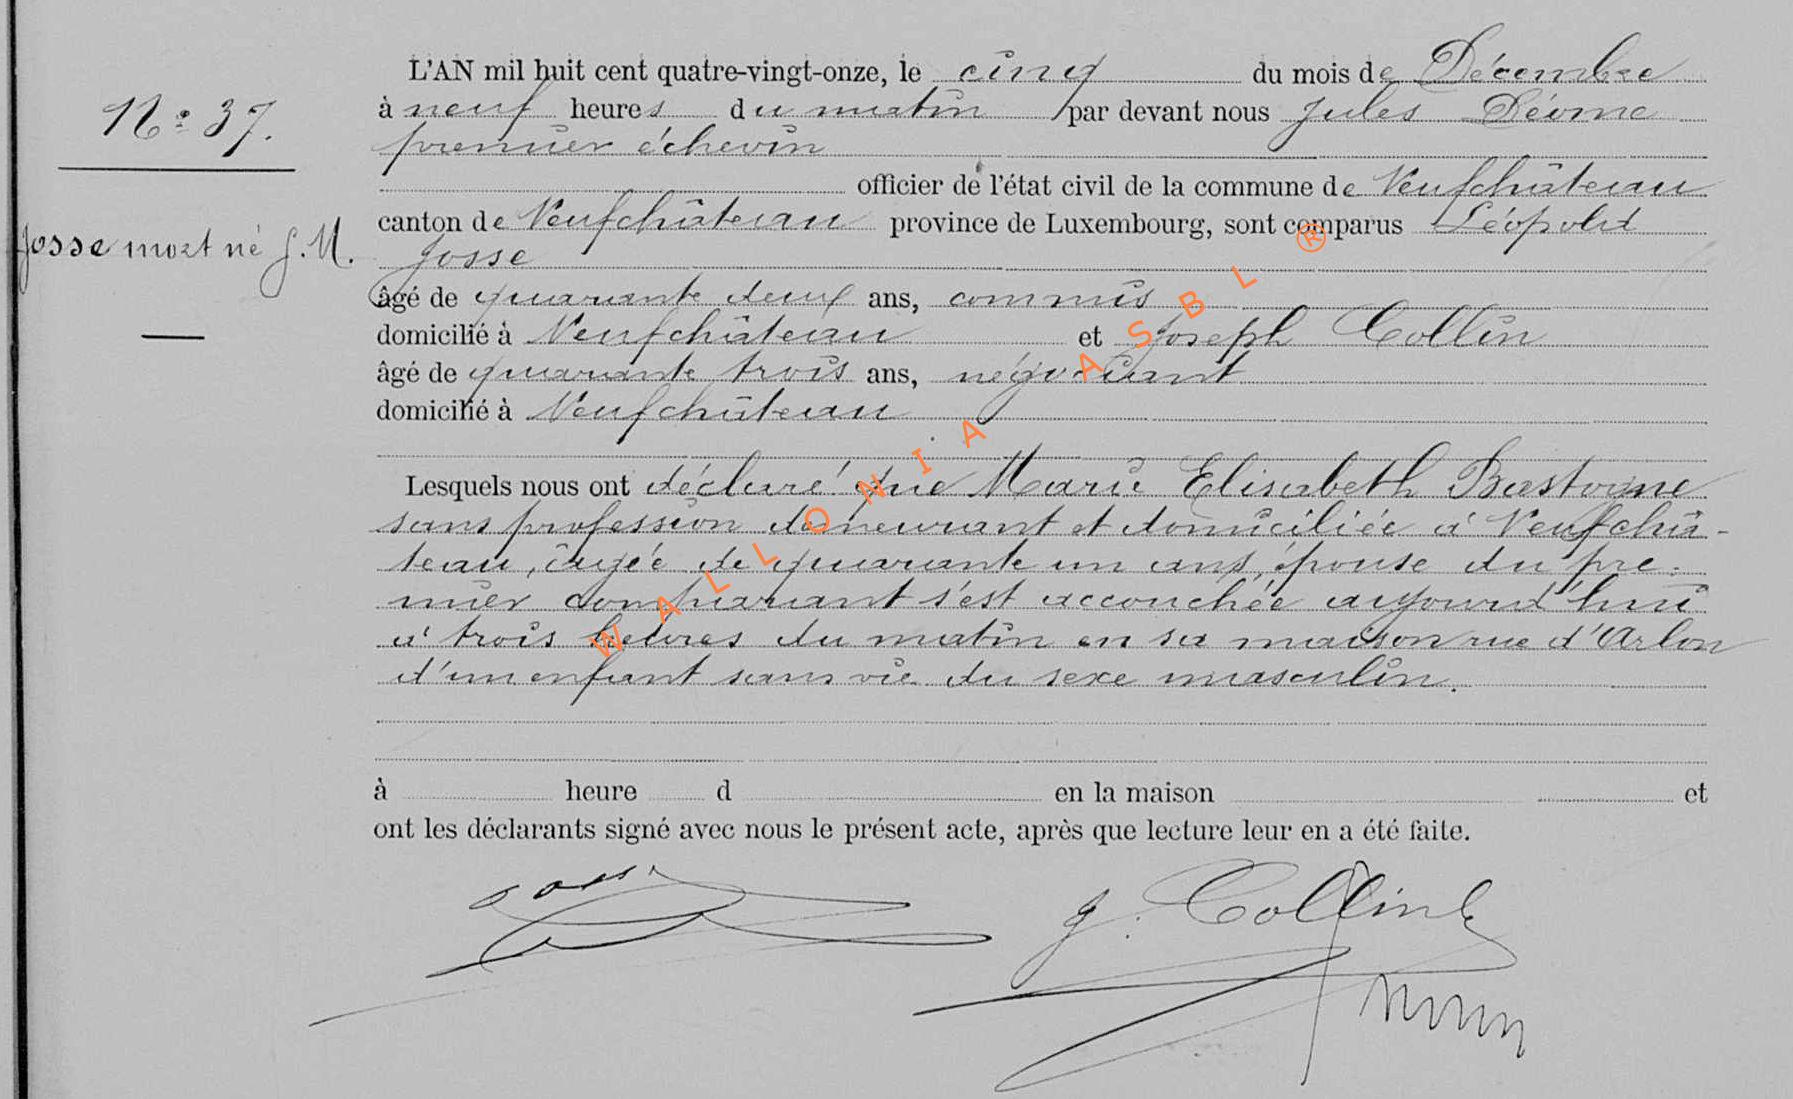 L'AN mil huit cent quatre-vingt-onze, le cinq du mois de Décembre
à neuf heures du matin par devant nous Jules Déome
premier échevin
officier de l'état civil de la commune de Neufchâteau
canton de Neufchâteau province de Luxembourg, sont comparus Léopold
Josse
âgé de quarante deux ans, commis
domicilié à Neufchâteau et Joseph Collin
âgé de quarante trois ans, négociant
domicilié à Neufchâteau
Lesquels nous ont déclaré que Marie Elisabeth Bastogne
sans profession demeurant et domiciliée à Neufchâ-
teau, âgée de quarante un ans, épouse du pre-
mier comparant s'est accouchée aujourd'hui
à trois heures du matin en sa maison rue d'Arlon
d'un enfant sans vie du sexe masculin.
à heure d en la maison et
ont les déclarants signé avec nous le présent acte, après que lecture leur en a été faite.
Josse
J. Collin
No 37.
Josse mort né J. M.
WALLONIA ASBL ®